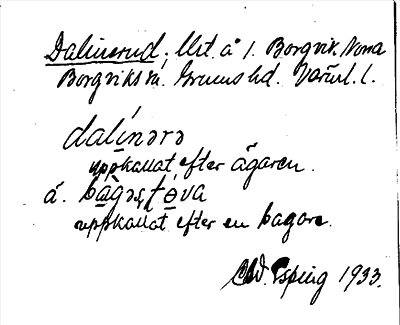 Dalinerud, lht. å 1. Borgvik. Norra
Borgviks sn. Grums hd. Värml. l.
dalínərə
uppkallat efter ägaren.
á. bàgəstòva
uppkallat efter en bagare.
Esping 1933.